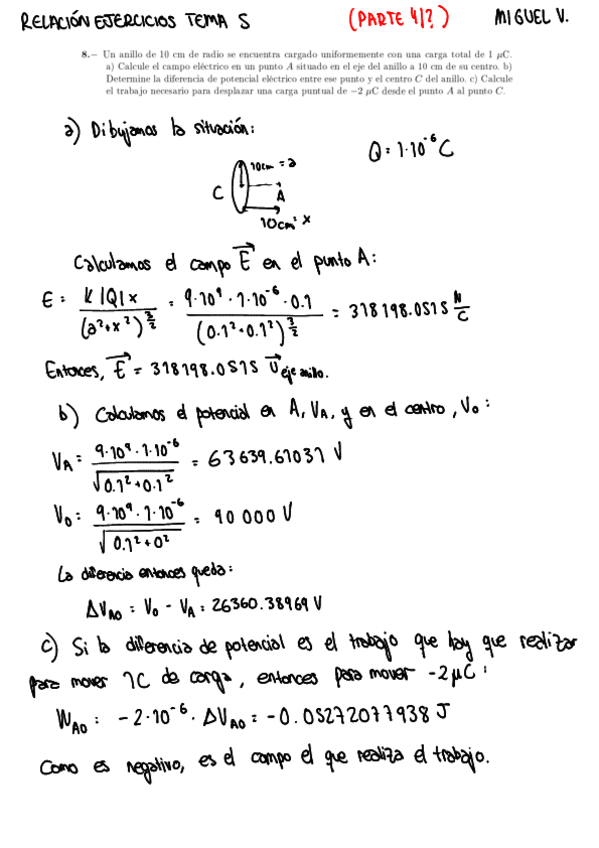 RELACIÓN EJERCICIOS TEMA 5 (PARTE 4/?) MIGUEL V.
8.– Un anillo de 10 cm de radio se encuentra cargado uniformemente con una carga total de 1 μC.
a) Calcule el campo eléctrico en un punto A situado en el eje del anillo a 10 cm de su centro. b)
Determine la diferencia de potencial eléctrico entre ese punto y el centro C del anillo. c) Calcule
el trabajo necesario para desplazar una carga puntual de −2 μC desde el punto A al punto C.
a) Dibujamos la situación:
Q = 1·10⁻⁶ C
10cm = a
C
A
10cm = x
Calculamos el campo E⃗ en el punto A:
E = K|Q|x / (a²+x²)^(3/2) = 9·10⁹·1·10⁻⁶·0.1 / (0.1²+0.1²)^(3/2) = 318198.0515 N/C
Entonces, E⃗ = 318198.0515 U⃗ eje anillo.
b) Calculamos el potencial en A, V_A, y en el centro, V_0:
V_A = 9·10⁹·1·10⁻⁶ / √(0.1²+0.1²) = 63639.61031 V
V_0 = 9·10⁹·1·10⁻⁶ / √(0.1²+0²) = 90 000 V
La diferencia entonces queda:
ΔV_A0 = V_0 - V_A = 26360.38969 V
c) Si la diferencia de potencial es el trabajo que hay que realizar
para mover 1C de carga, entonces para mover -2μC:
W_A0 = -2·10⁻⁶·ΔV_A0 = -0.05272077938 J
Como es negativo, es el campo el que realiza el trabajo.